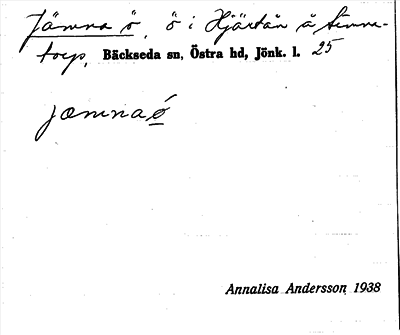 Jämna ö, ö i Hjärtån å Sunna-
torp, Bäckseda sn, Östra hd, Jönk. l. 25
jæmnaǿ
Annalisa Andersson 1938